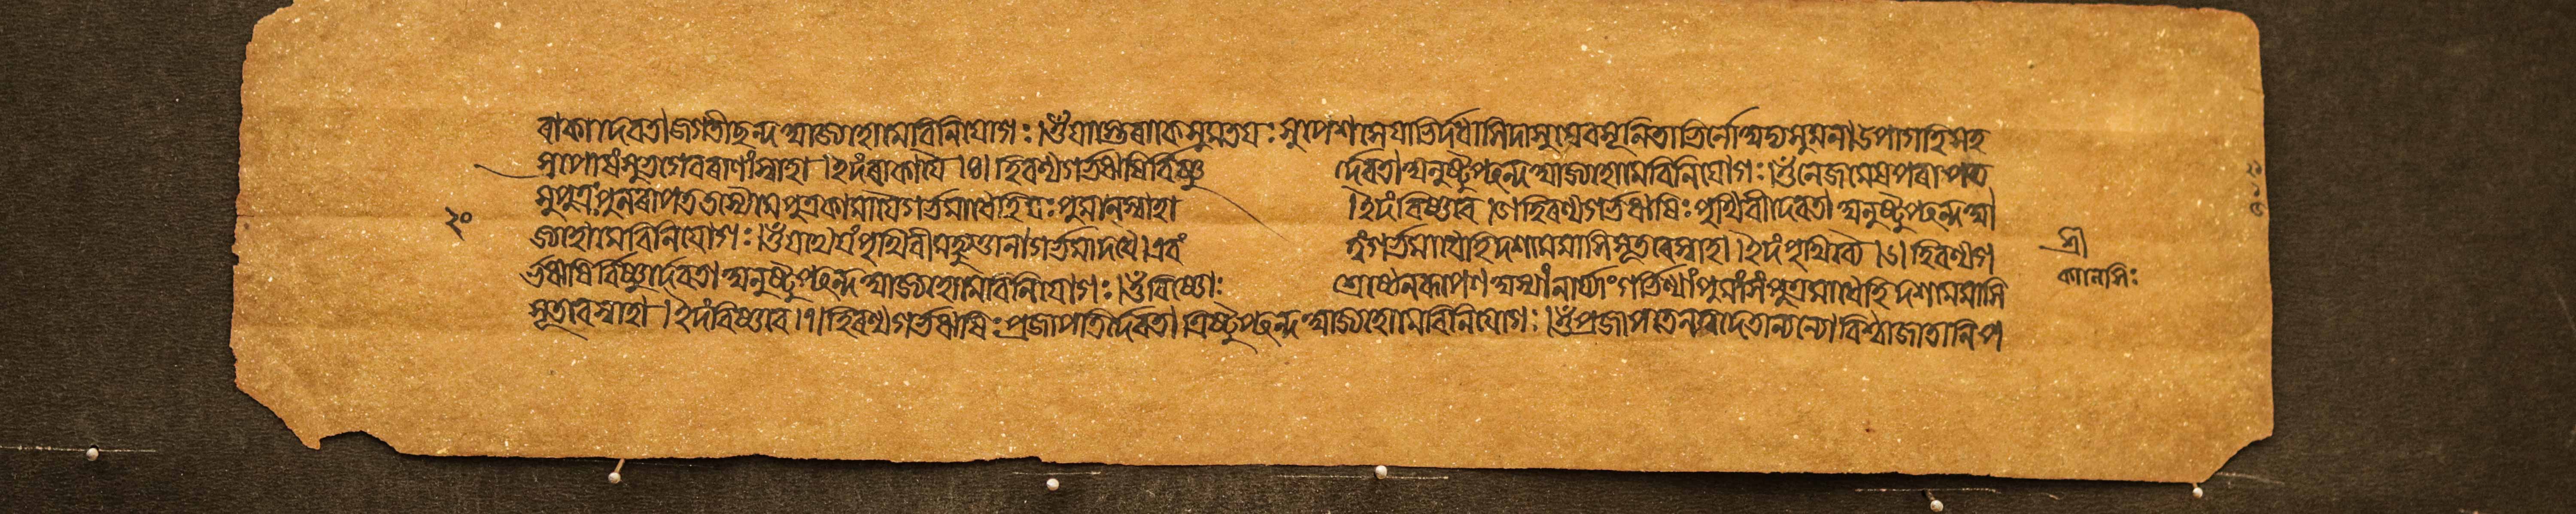 ৰাকাদেবতা জগতীছন্দ আজ্যহোমে বিনিয়োগঃ। ওঁ যাস্তে ৰাকে সুমতয়ঃ সুপেশসো যাভির্দদাসি দাশুষে বসূনি তাভির্নো অদ্য সুমনা উপাগহি সহ
স্ৰপোষং সুভগে ৰৰাণা স্বাহা। ইদং ৰাকায়ৈ।৪। হিৰণ্যগর্ভঋষির্বিষ্ণু র্দেবতা অনুষ্টুপ্ছন্দ আজ্যহোমে বিনিয়োগঃ। ওঁ নেজমেষ পৰাপত
সুপুত্রঃ পুনৰাপত অস্যৈ মে পুত্রকামায়ৈ গর্ভমাধেহি যঃ পুমান্ স্বাহা। ইদং বিষ্ণবে।৫। হিৰণ্যগর্ভঋষিঃ পৃথিবীদেবতা অনুষ্টুপ্ছন্দ আ
২০
জ্যহোমে বিনিয়োগঃ। ওঁ যথেয়ং পৃথিবী মহ্যুত্তানা গর্ভমাদধে। এবং ত্বং গর্ভমাধেহি দশমে মাসি সূতবে স্বাহা। ইদং পৃথিব্যৈ।৬। হিৰণ্যগ
র্ভঋষির্বিষ্ণুর্দেবতা অনুষ্টুপ্ছন্দ আজ্যহোমে বিনিয়োগঃ। ওঁ বিষ্ণোঃ শ্রেষ্ঠেন ৰূপেণ অস্যাং নার্য্যাং গর্ভিণ্যাং পুমাংসং পুত্রমাধেহি দশমে মাসি
সূতবে স্বাহা। ইদং বিষ্ণবে।৭। হিৰণ্যগর্ভঋষিঃ প্রজাপতির্দেবতা ত্রিষ্টুপ্ছন্দ আজ্যহোমে বিনিয়োগঃ। ওঁ প্রজাপতে ন ত্বদেতান্যন্যো বিশ্বা জাতানি প